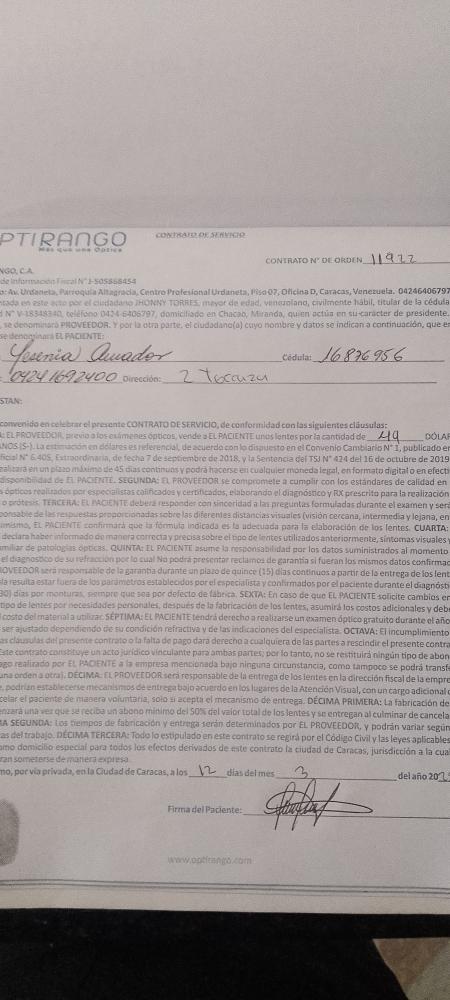 PTIRANGO
Más que una Óptica
CONTRATO DE SERVICIO
CONTRATO N° DE ORDEN 11922
NGO, C.A.
de Información Fiscal N° J-505868454
o: Av. Urdaneta, Parroquia Altagracia, Centro Profesional Urdaneta, Piso 07, Oficina D, Caracas, Venezuela. 04246406797
ntada en este acto por el ciudadano JHONNY TORRES, mayor de edad, venezolano, civilmente hábil, titular de la cédula
d N° V-18348340, teléfono 0424-6406797, domiciliado en Chacao, Miranda, quien actúa en su carácter de presidente.
, se denominará PROVEEDOR. Y por la otra parte, el ciudadano(a) cuyo nombre y datos se indican a continuación, que en
se denominará EL PACIENTE:
Yesenia Amador Cédula: 16876956
04241692400 Dirección: 2
STAN:
convenido en celebrar el presente CONTRATO DE SERVICIO, de conformidad con las siguientes cláusulas:
: EL PROVEEDOR, previo a los exámenes ópticos, vende a EL PACIENTE unos lentes por la cantidad de 49 DÓLAR
ANOS ($-). La estimación en dólares es referencial, de acuerdo con lo dispuesto en el Convenio Cambiario N° 1, publicado en
ficial N° 6.405, Extraordinaria, de fecha 7 de septiembre de 2018, y la Sentencia del TSJ N° 424 del 16 de octubre de 2019
ealizará en un plazo máximo de 45 días continuos y podrá hacerse en cualquier moneda legal, en formato digital o en efecti
disponibilidad de EL PACIENTE. SEGUNDA: EL PROVEEDOR se compromete a cumplir con los estándares de calidad en
s ópticos realizados por especialistas calificados y certificados, elaborando el diagnóstico y RX prescrito para la realización
o prótesis. TERCERA: EL PACIENTE deberá responder con sinceridad a las preguntas formuladas durante el examen y será
ponsable de las respuestas proporcionadas sobre las diferentes distancias visuales (visión cercana, intermedia y lejana, en
imismo, EL PACIENTE confirmará que la fórmula indicada es la adecuada para la elaboración de los lentes. CUARTA:
declara haber informado de manera correcta y precisa sobre el tipo de lentes utilizados anteriormente, síntomas visuales y
amiliar de patologías ópticas. QUINTA: EL PACIENTE asume la responsabilidad por los datos suministrados al momento
el diagnóstico de su refracción por lo cual No podrá presentar reclamos de garantía si fueran los mismos datos confirmad
OVEEDOR será responsable de la garantía durante un plazo de quince (15) días continuos a partir de la entrega de los lent
la resulta estar fuera de los parámetros establecidos por el especialista y confirmados por el paciente durante el diagnósti
30) días por monturas, siempre que sea por defecto de fábrica. SEXTA: En caso de que EL PACIENTE solicite cambios en
tipo de lentes por necesidades personales, después de la fabricación de los lentes, asumirá los costos adicionales y debe
costo del material a utilizar. SÉPTIMA: EL PACIENTE tendrá derecho a realizarse un examen óptico gratuito durante el año
ser ajustado dependiendo de su condición refractiva y de las indicaciones del especialista. OCTAVA: El incumplimiento
as cláusulas del presente contrato o la falta de pago dará derecho a cualquiera de las partes a rescindir el presente contra
Este contrato constituye un acto jurídico vinculante para ambas partes; por lo tanto, no se restituirá ningún tipo de abon
ago realizado por EL PACIENTE a la empresa mencionada bajo ninguna circunstancia, como tampoco se podrá transfe
una orden a otra). DÉCIMA: EL PROVEEDOR será responsable de la entrega de los lentes en la dirección fiscal de la empre
, podrían establecerse mecanismos de entrega bajo acuerdo en los lugares de la Atención Visual, con un cargo adicional q
celar el paciente de manera voluntaria, solo si acepta el mecanismo de entrega. DÉCIMA PRIMERA: La fabricación de
enzará una vez que se reciba un abono mínimo del 50% del valor total de los lentes y se entregan al culminar de cancela
MA SEGUNDA: Los tiempos de fabricación y entrega serán determinados por EL PROVEEDOR, y podrán variar según
cas del trabajo. DÉCIMA TERCERA: Todo lo estipulado en este contrato se regirá por el Código Civil y las leyes aplicables
omo domicilio especial para todos los efectos derivados de este contrato la ciudad de Caracas, jurisdicción a la cual
ran someterse de manera expresa.
mo, por vía privada, en la Ciudad de Caracas, a los 12 días del mes 3 del año 202
Firma del Paciente:
www.optirango.com